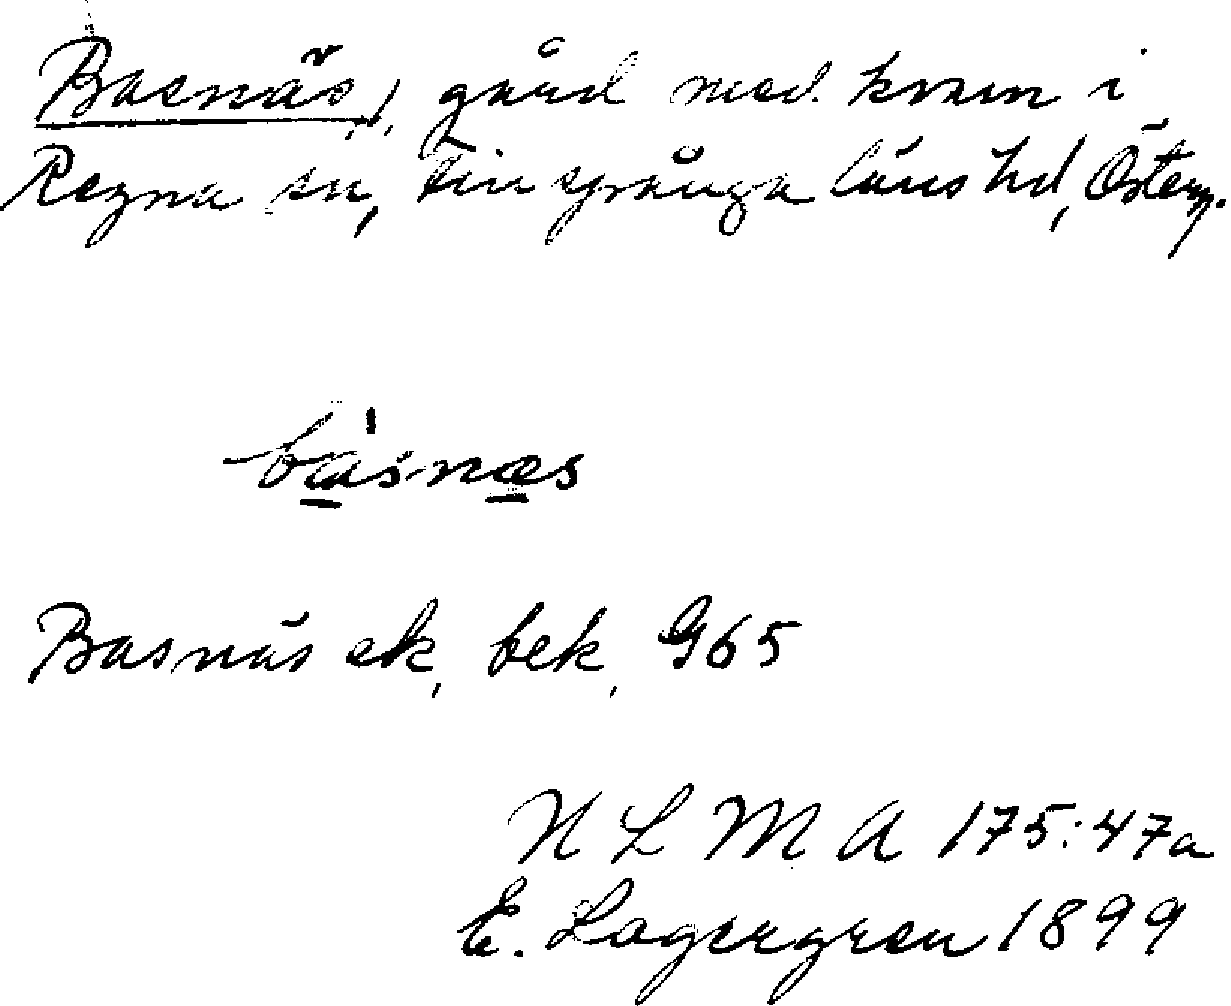 Basnäs, gård med kvarn i
Regna sn, Finspånga läns hd, Österg.
básnæs
Basnäs ek, bek, G65
N L M A 175:47a
E. Lagergren 1899